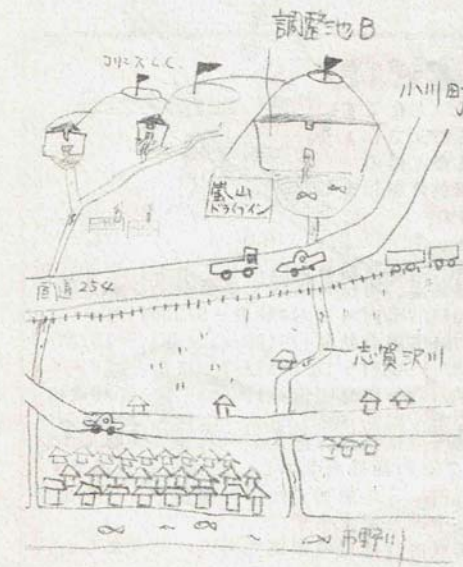 調整池B
コリンズC.C.
小川町
嵐山
ドライブイン
国道254
志賀沢川
市野川